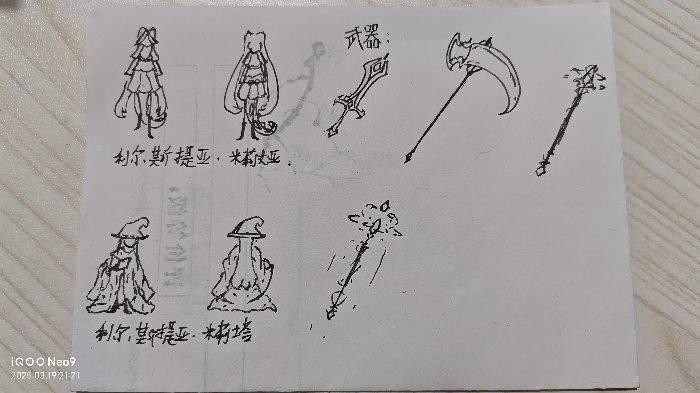 武器：
利尔.斯提亚.米莉亚.
利尔.斯提亚.米莉塔
iQOO Neo9
2025.03.19 21:21